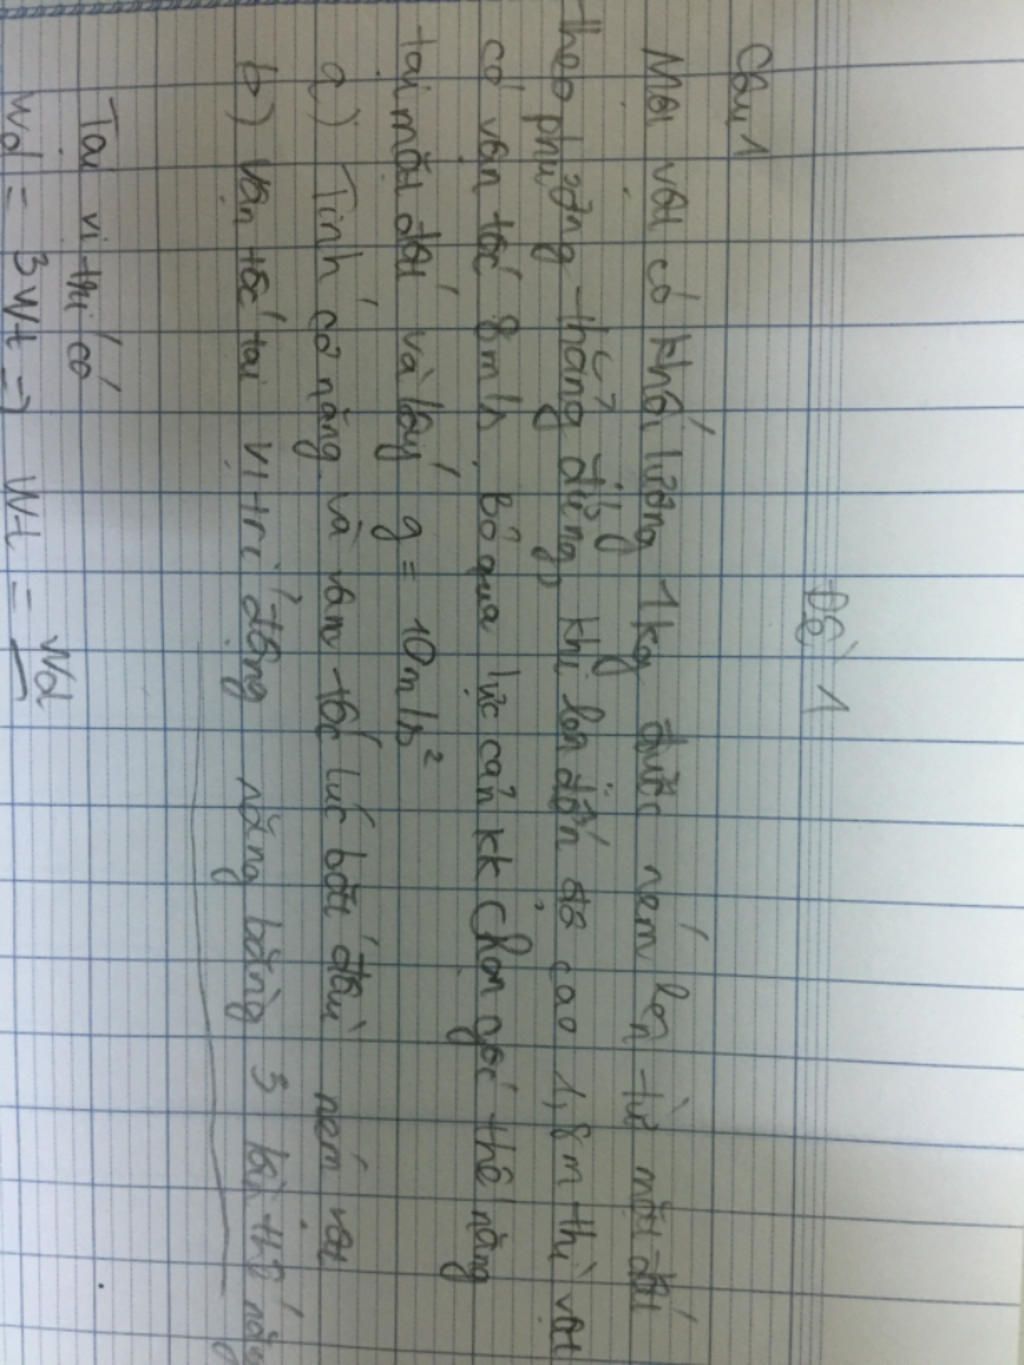 Đề 1
Câu 1
Một vật có khối lượng 1kg được ném lên từ mặt đất
theo phương thẳng đứng, khi lên đến độ cao 1,8m thì vật
có vận tốc 8m/s. Bỏ qua lực cản kk Chọn gốc thế năng
tại mặt đất và lấy g = 10m/s²
a) Tính cơ năng và vận tốc lúc bắt đầu ném vật
b) Vận tốc tại vị trí động năng bằng 3 lần thế năng
Tại vị trí có
Wđ = 3Wt → Wt = Wđ